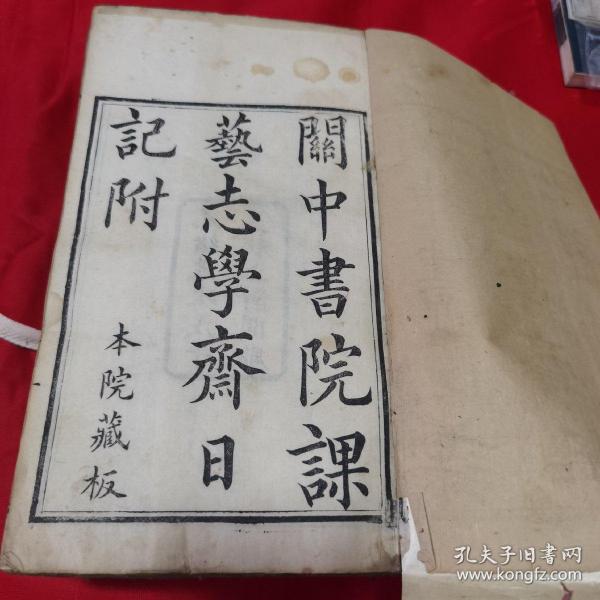 關中書院課
藝志學齋日
記附
本院藏板
孔夫子旧书网
www.kongfz.com